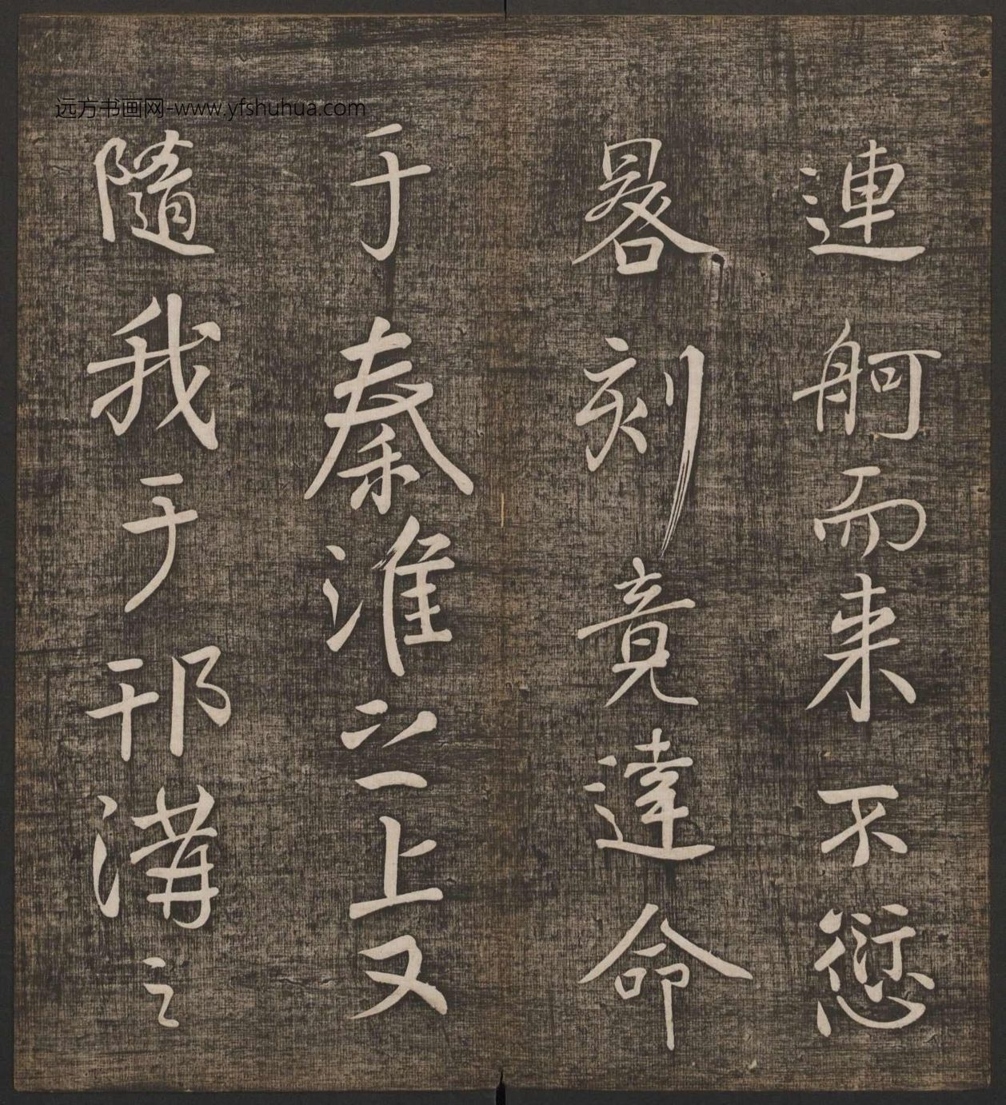 远方书画网-www.yfshuhua.com
連舸而来不愆
晷刻竟達命
于秦淮之上又
隨我于邗溝之